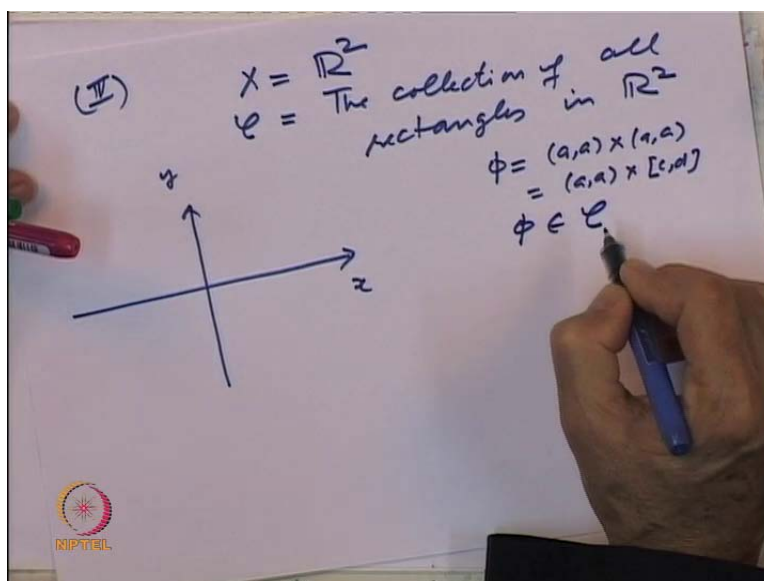 (II) X = ℝ²
𝒞 = The collection of all
rectangles in ℝ²
ϕ = (a,a) × (a,a)
= (a,a) × [c,d]
ϕ ∈ 𝒞
y
x
NPTEL